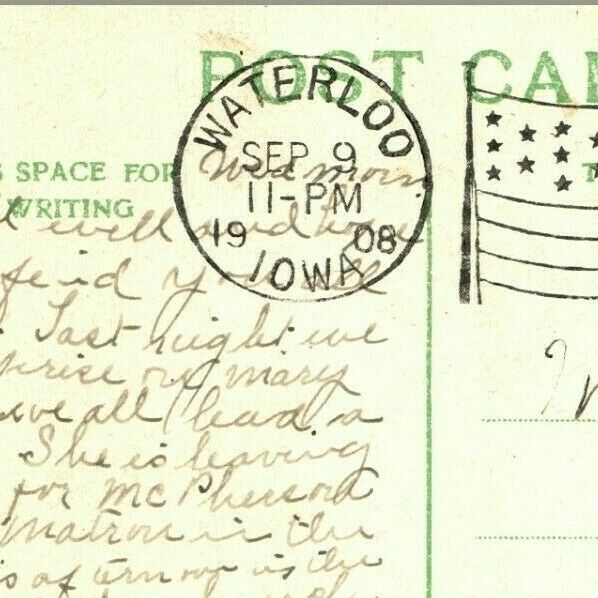 POST CA
WATERLOO
SEP 9
11-PM
19 08
IOWA
S SPACE FOR
WRITING
T
Wed morn
well and
find you all
Last night we
prise on Mary
we all had a
She is leaving
for McPherson
matron in the
is afternoon is the